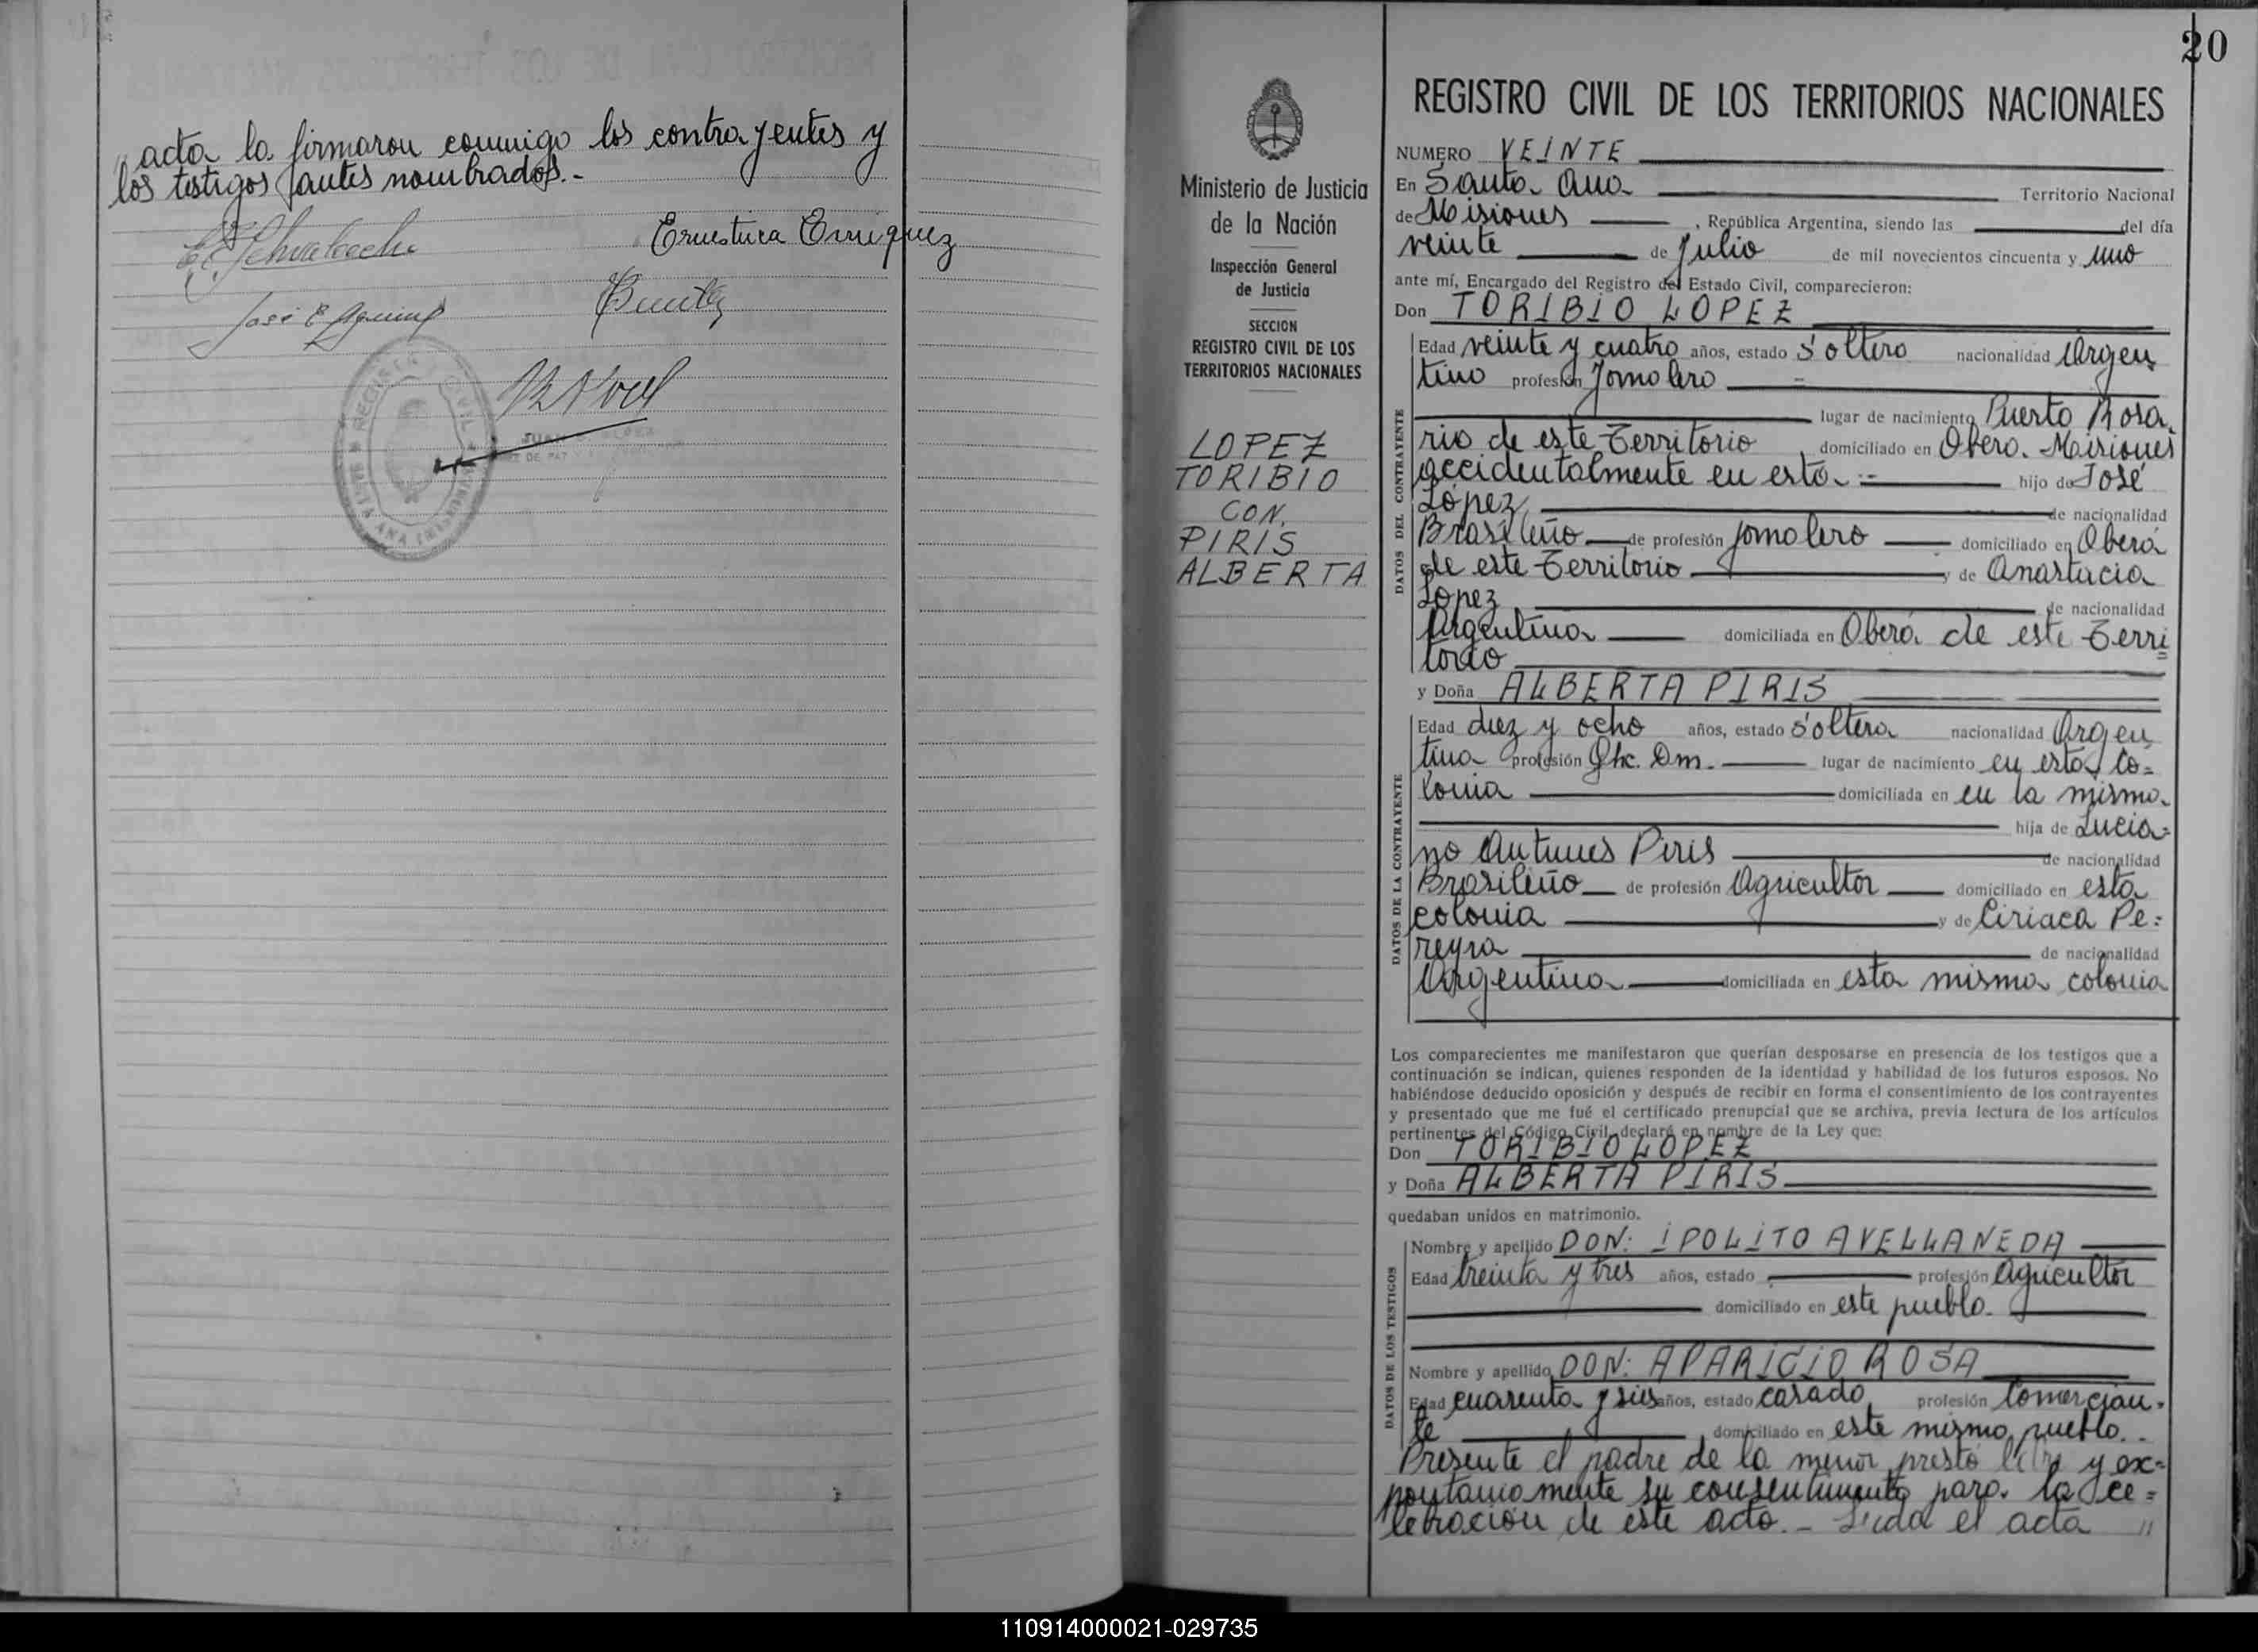 acta la firmaron conmigo los contrayentes y
los testigos antes nombrados.-
Ernestina Enriquez
José E Aquino
REGISTRO CIVIL
SANTA ANA
20
REGISTRO CIVIL DE LOS TERRITORIOS NACIONALES
Ministerio de Justicia
de la Nación
Inspección General
de Justicia
SECCION
REGISTRO CIVIL DE LOS
TERRITORIOS NACIONALES
LOPEZ
TORIBIO
CON.
PIRIS
ALBERTA
NUMERO VEINTE
En Santa Ana Territorio Nacional
de Misiones, República Argentina, siendo las del día
veinte de Julio de mil novecientos cincuenta y uno
ante mí, Encargado del Registro del Estado Civil, comparecieron:
Don TORIBIO LOPEZ
DATOS DEL CONTRAYENTE
Edad veinte y cuatro años, estado soltero nacionalidad Argen
tino profesión Jornalero
lugar de nacimiento Puerto Rosa
rio de este Territorio domiciliado en Obera. Misiones
accidentalmente en esta.- hijo de José
López de nacionalidad
Brasileño de profesión jornalero domiciliado en Oberá
de este Territorio y de Anastacia
Lopez de nacionalidad
Argentina domiciliada en Oberá de este Terri
torio
y Doña ALBERTA PIRIS
DATOS DE LA CONTRAYENTE
Edad diez y ocho años, estado soltera nacionalidad Argen
tina profesión Qhc. Dm. lugar de nacimiento en esta Co=
lonia domiciliada en en la misma.
hija de Lucia=
no Antunes Piris de nacionalidad
Brasileño de profesión Agricultor domiciliado en esta
colonia y de Ciriaca Pe=
reyra de nacionalidad
Argentina domiciliada en esta misma colonia
Los comparecientes me manifestaron que querían desposarse en presencia de los testigos que a
continuación se indican, quienes responden de la identidad y habilidad de los futuros esposos. No
habiéndose deducido oposición y después de recibir en forma el consentimiento de los contrayentes
y presentado que me fué el certificado prenupcial que se archiva, previa lectura de los artículos
pertinentes del Código Civil, declaré en nombre de la Ley que:
Don TORIBIO LOPEZ
y Doña ALBERTA PIRIS
quedaban unidos en matrimonio.
DATOS DE LOS TESTIGOS
Nombre y apellido DON: IPOLITO AVELLANEDA
Edad treinta y tres años, estado profesión Agricultor
domiciliado en este pueblo.
Nombre y apellido DON: APARICIO ROSA
Edad cuarenta y seis años, estado casado profesión Comercian-
te domiciliado en este mismo pueblo.-
Presente el padre de la menor prestó libre y ex=
pontaniamente su consentimiento para la ce=
lebración de este acto.- Leida el acta "
110914000021-029735